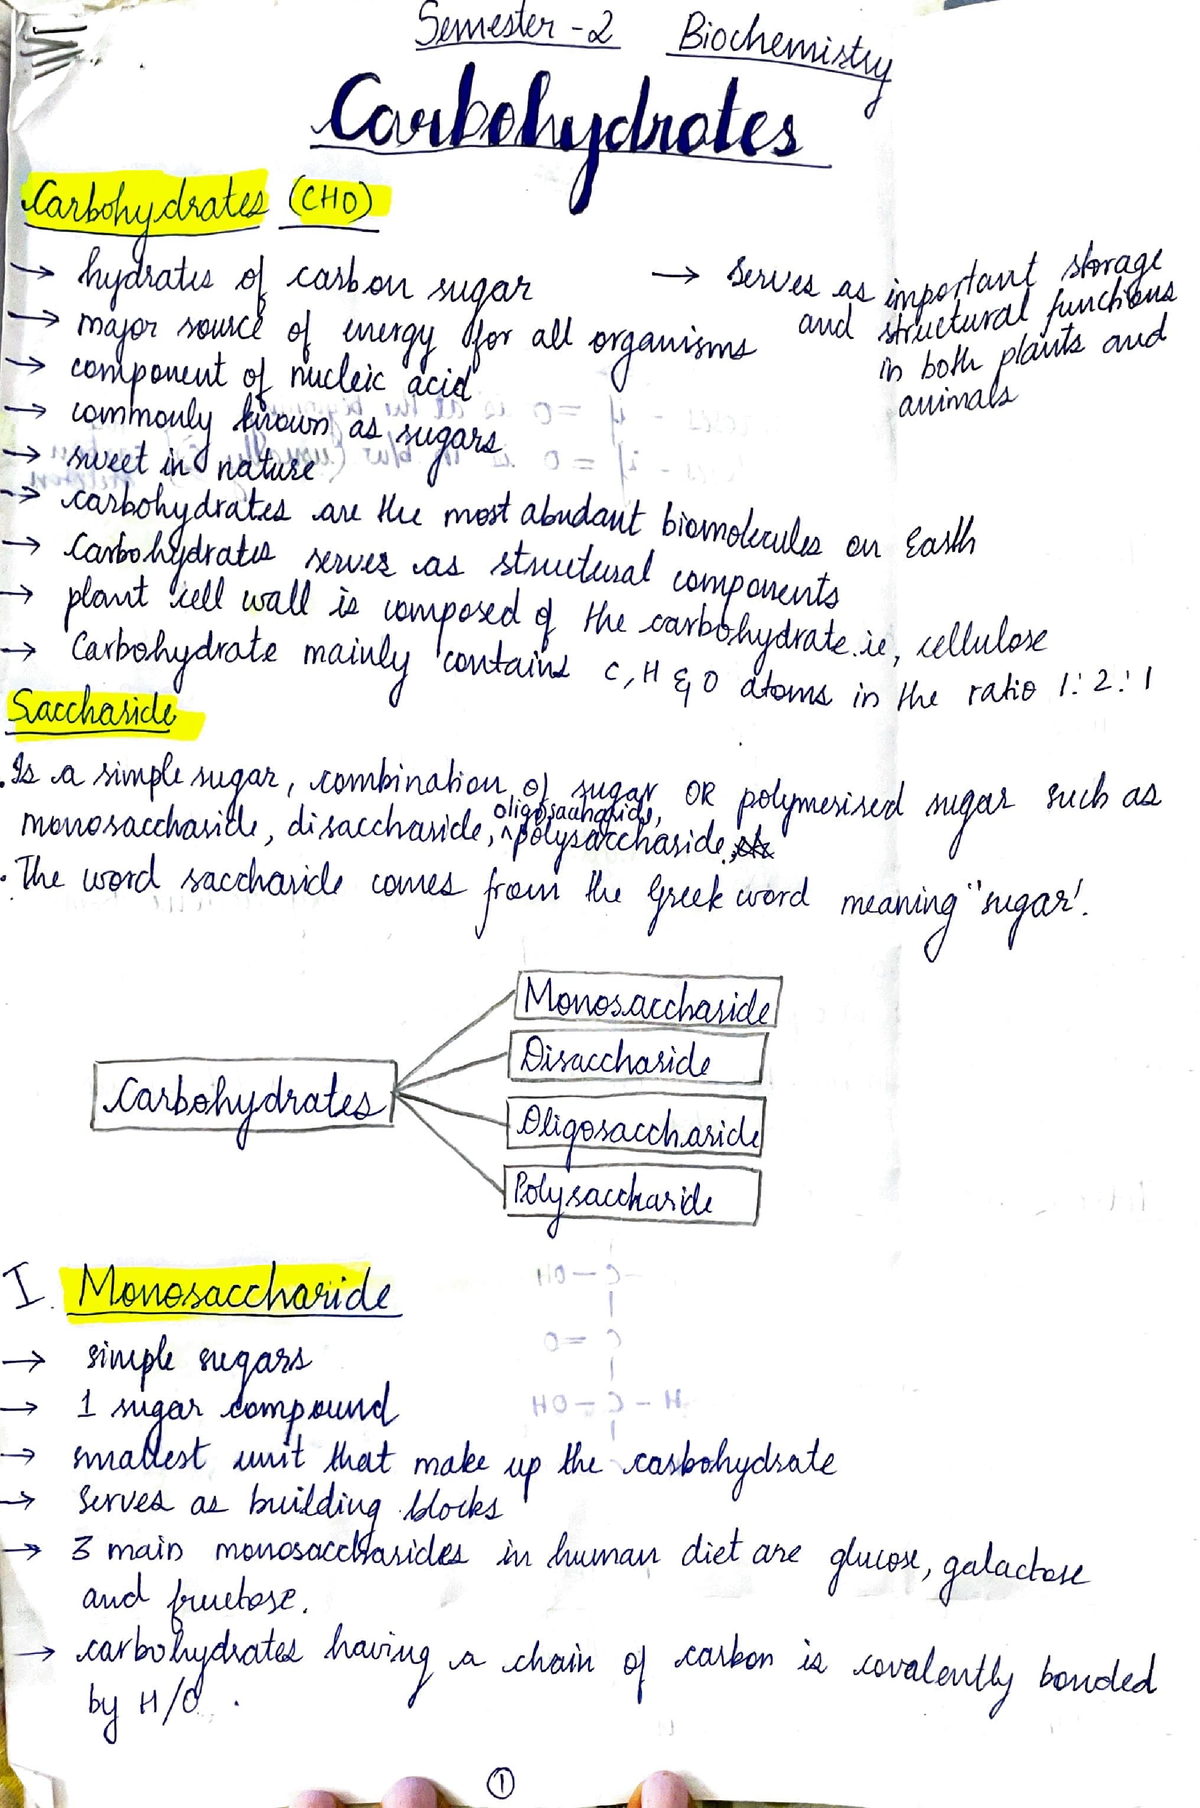 Semester -2 Biochemistry
Carbohydrates
Carbohydrates (CHO)
→ hydrates of carbon sugar
→ major source of energy for all organisms
→ component of nucleic acid
→ commonly known as sugars
→ sweet in nature
→ serves as important storage
and structural functions
in both plants and
animals
→ carbohydrates are the most abundant biomolecules on Earth
→ Carbohydrates serves as structural components
→ plant cell wall is composed of the carbohydrate ie, cellulose
→ Carbohydrate mainly contains C, H & O atoms in the ratio 1:2:1
Saccharide
. Is a simple sugar, combination of sugar OR polymerised sugar such as
monosaccharide, disaccharide, ^oligosaccharide, polysaccharide,
. The word saccharide comes from the Greek word meaning "sugar'.
Carbohydrates
Monosaccharide
Disaccharide
Oligosaccharide
Polysaccharide
I. Monosaccharide
→ simple sugars
→ 1 sugar compound
→ smallest unit that make up the carbohydrate
→ serves as building blocks
→ 3 main monosaccharides in human diet are glucose, galactose
and fructose.
→ carbohydrates having a chain of carbon is covalently bonded
by H/O .
1